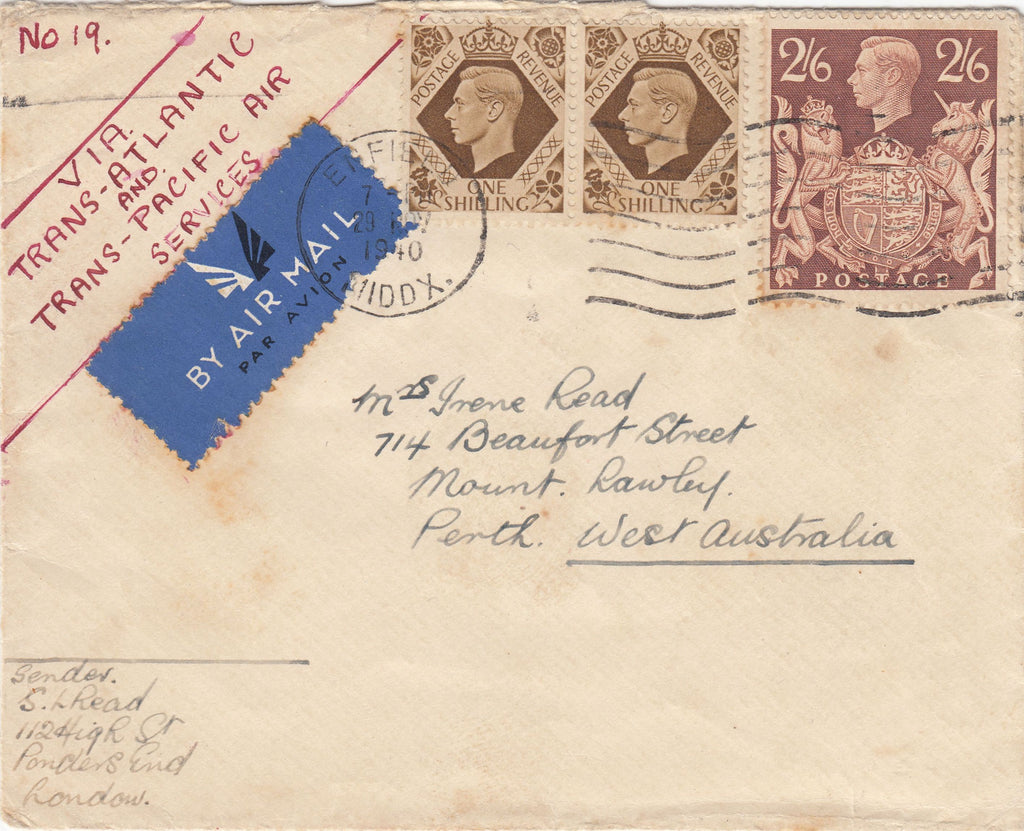 No 19.
VIA.
TRANS-ATLANTIC
AND.
TRANS-PACIFIC AIR
SERVICES
BY AIR MAIL
PAR AVION
ENFIELD
7
29 NOV
1940
MIDDX.
POSTAGE REVENUE
ONE
SHILLING
POSTAGE REVENUE
ONE
SHILLING
2/6 2/6
POSTAGE
Mrs Irene Read
714 Beaufort Street
Mount. Lawley.
Perth. West Australia
Sender.
S. L Read
112 High St
Ponders End
London.